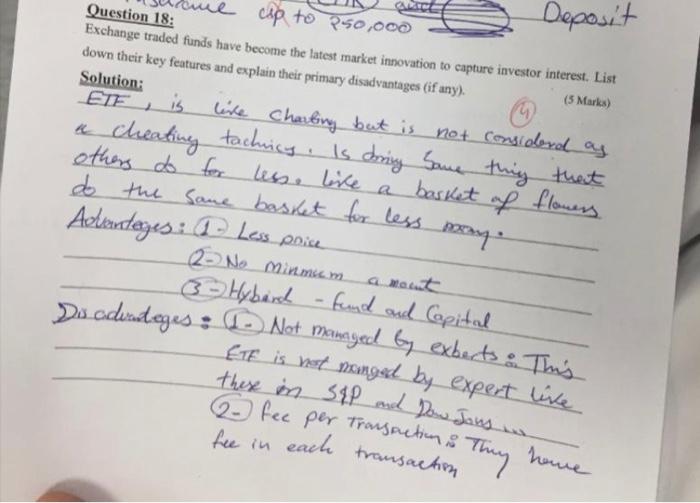 cap to 250,000 and Deposit
Question 18:
Exchange traded funds have become the latest market innovation to capture investor interest. List
down their key features and explain their primary disadvantages (if any).
(5 Marks)
Solution:
4
ETF, is like Cheating but is not Considered as
a cheating tachnics. Is doing Same thing that
others do for less. like a basket of flowers
do the same basket for less money.
Advanteges: 1- Less price
2- No minmuem amount
3- Hyberd - fund and Capital
Disadvanteges: 1- Not managed by exberts: This
ETF is not manged by expert like
these in S&P and Dow Jons ...
2- fee per Transaction: They have
fee in each transaction